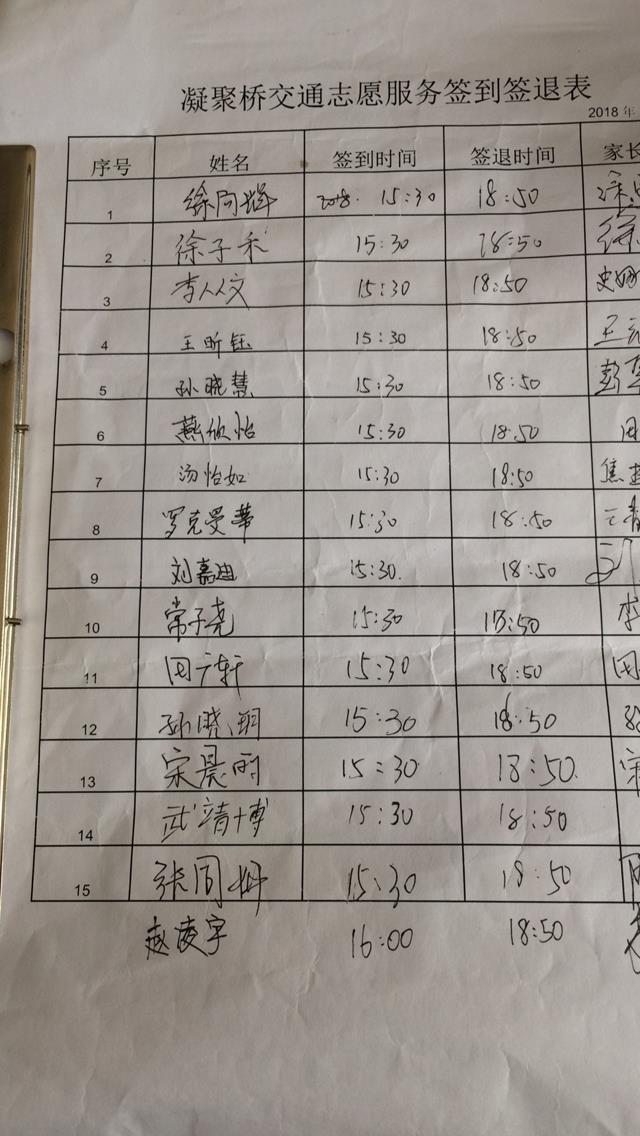 凝聚桥交通志愿服务签到签退表
2018 年
序号 姓名 签到时间 签退时间 家长
1 徐同辉 2018. 15:30 18:50
2 徐子禾 15:30 18:50 徐
3 李人人文 15:30 18:50 史
4 王昕钰 15:30 18:50 王元
5 孙晓慧 15:30 18:50 彭
6 燕欣怡 15:30 18:50 田
7 汤怡如 15:30 18:50 焦
8 罗克曼蒂 15:30 18:50
9 刘嘉迪 15:30. 18:50
10 常子尧 15:30 18:50 李
11 田广轩 15:30 18:50 田
12 孙晓翊 15:30 18:50
13 宋晨雨 15:30 18:50. 宋
14 武靖博 15:30 18:50
15 张同妍 15:30 18:50
赵凌宇 16:00 18:50